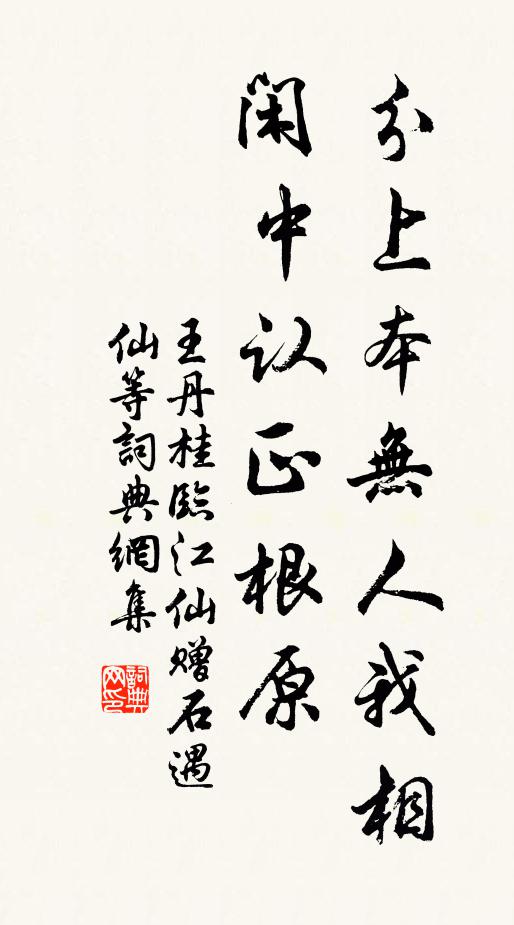 分上本無人我相
闲中认正根原
王丹桂臨江仙赠石遇
仙等詞典網集
詞典
网印